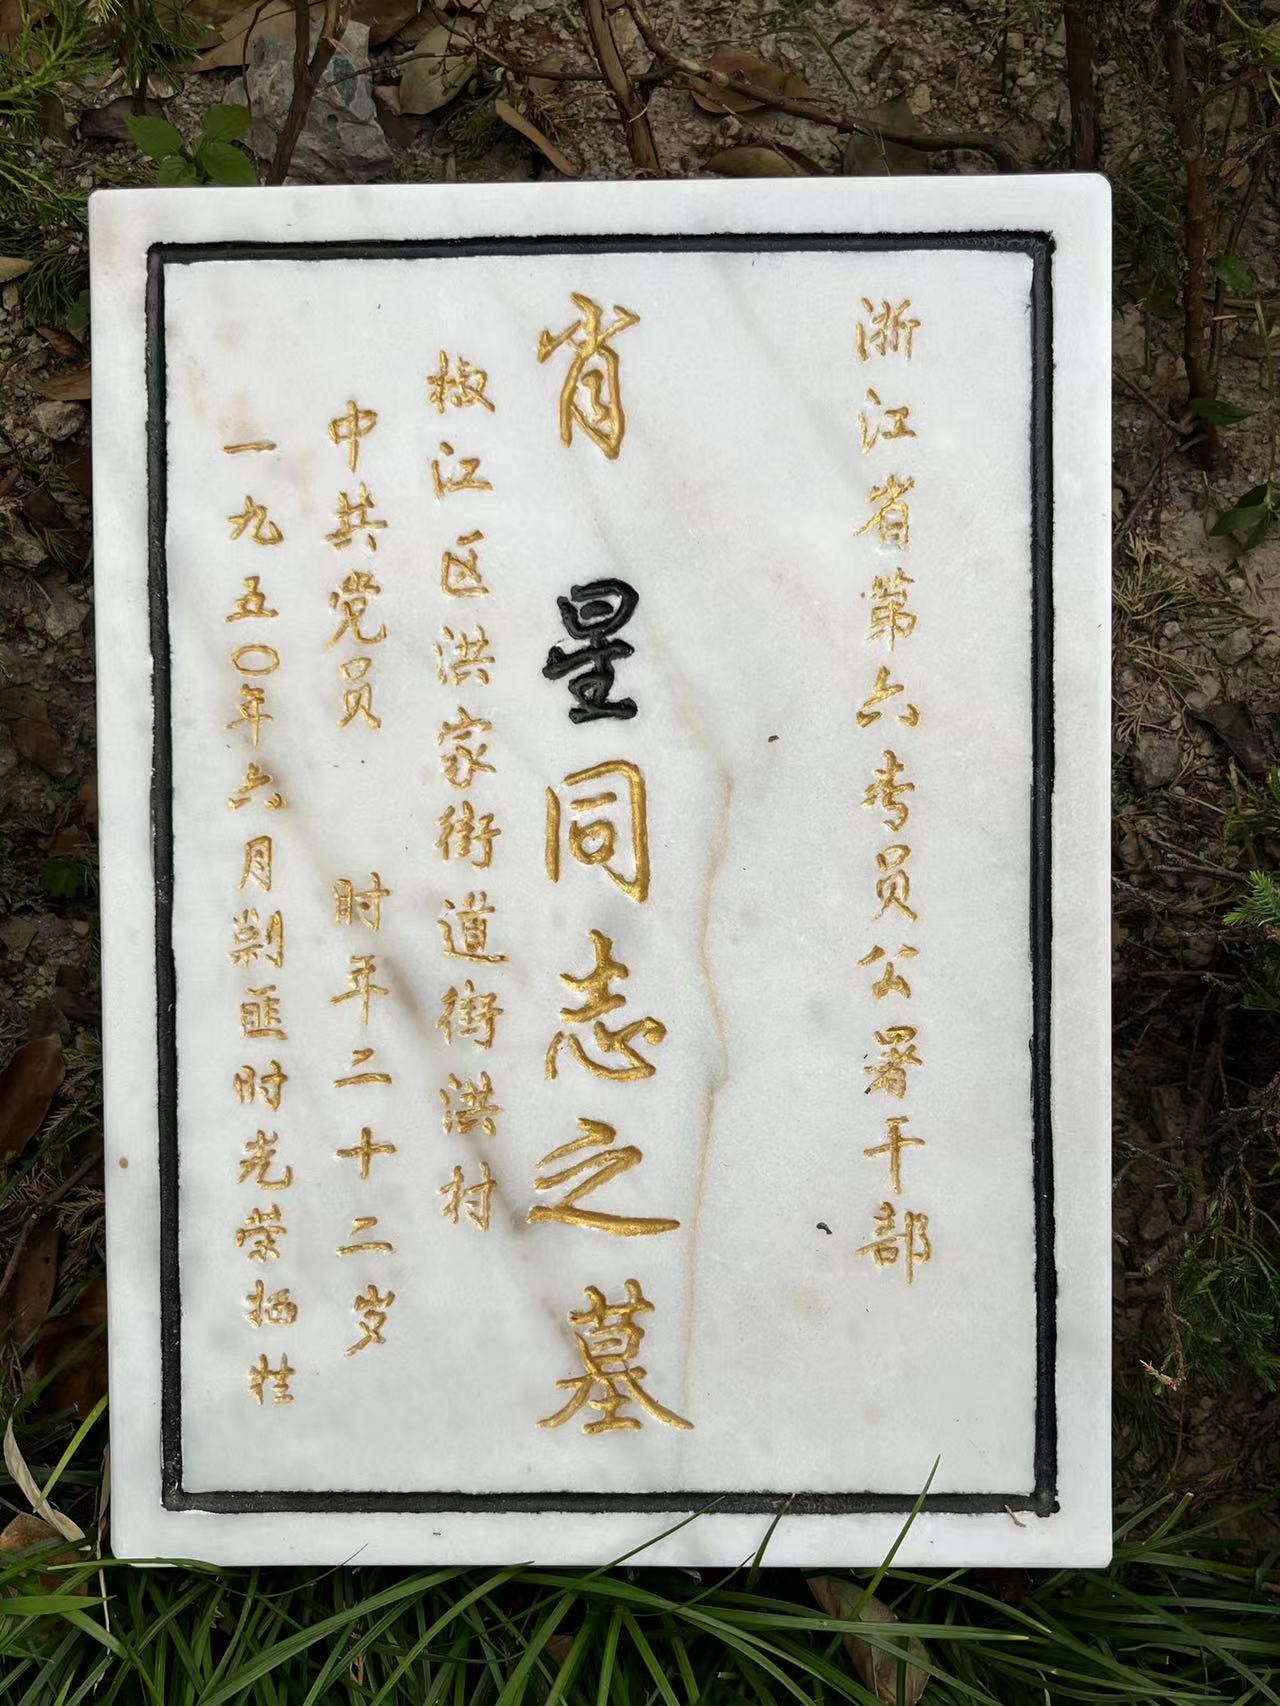 浙江省第六专员公署干部
肖星同志之墓
椒江区洪家街道街洪村
中共党员 时年二十二岁
一九五〇年六月剿匪时光荣牺牲